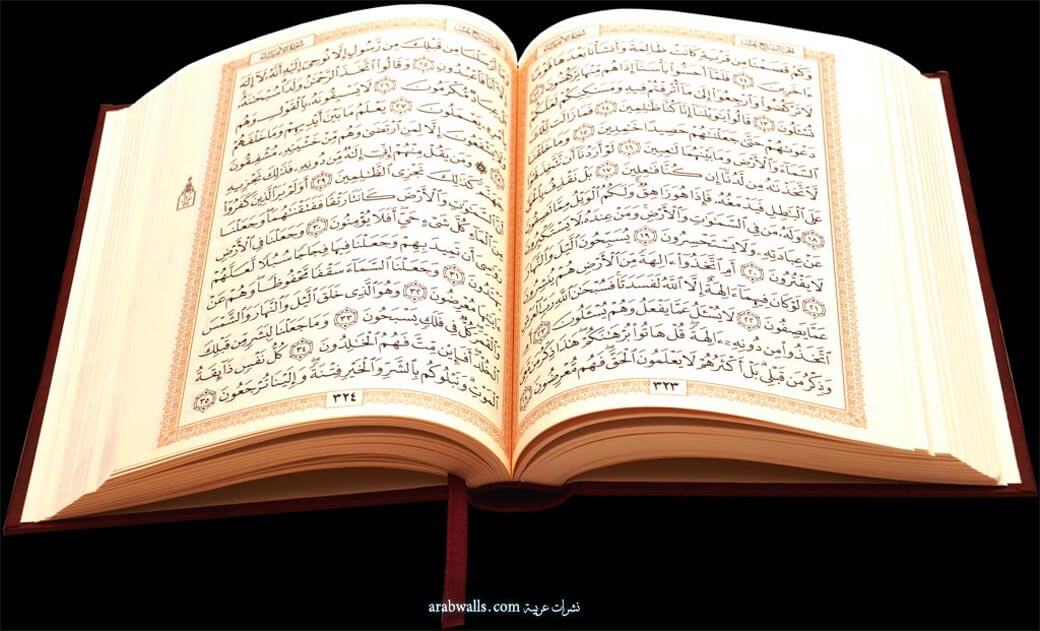 الجزء السابع عشر سورة الأنبياء
وَكَمْ قَصَمْنَا مِن قَرْيَةٍ كَانَتْ ظَالِمَةً وَأَنشَأْنَا بَعْدَهَا قَوْمًا
ءَاخَرِينَ ١١ فَلَمَّآ أَحَسُّوا۟ بَأْسَنَآ إِذَا هُم مِّنْهَا يَرْكُضُونَ
لَا تَرْكُضُوا۟ وَٱرْجِعُوٓا۟ إِلَىٰ مَآ أُتْرِفْتُمْ فِيهِ وَمَسَٰكِنِكُمْ لَعَلَّكُمْ
تُسْـَٔلُونَ ١٣ قَالُوا۟ يَٰوَيْلَنَآ إِنَّا كُنَّا ظَٰلِمِينَ ١٤ فَمَا زَالَت تِّلْكَ
دَعْوَىٰهُمْ حَتَّىٰ جَعَلْنَٰهُمْ حَصِيدًا خَٰمِدِينَ ١٥ وَمَا خَلَقْنَا
ٱلسَّمَآءَ وَٱلْأَرْضَ وَمَا بَيْنَهُمَا لَٰعِبِينَ ١٦ لَوْ أَرَدْنَآ أَن نَّتَّخِذَ
لَّٱتَّخَذْنَٰهُ مِن لَّدُنَّآ إِن كُنَّا فَٰعِلِينَ ١٧ بَلْ نَقْذِفُ بِٱلْحَقِّ
عَلَى ٱلْبَٰطِلِ فَيَدْمَغُهُۥ فَإِذَا هُوَ زَاهِقٌ وَلَكُمُ ٱلْوَيْلُ مِمَّا تَصِفُونَ
١٨ وَلَهُۥ مَن فِى ٱلسَّمَٰوَٰتِ وَٱلْأَرْضِ وَمَنْ عِندَهُۥ لَا يَسْتَكْبِرُونَ
عَنْ عِبَادَتِهِۦ وَلَا يَسْتَحْسِرُونَ ١٩ يُسَبِّحُونَ ٱلَّيْلَ وَٱلنَّهَارَ
لَا يَفْتُرُونَ ٢٠ أَمِ ٱتَّخَذُوٓا۟ ءَالِهَةً مِّنَ ٱلْأَرْضِ هُمْ يُنشِرُونَ
٢١ لَوْ كَانَ فِيهِمَآ ءَالِهَةٌ إِلَّا ٱللَّهُ لَفَسَدَتَا فَسُبْحَٰنَ ٱللَّهِ رَبِّ ٱلْعَرْشِ
عَمَّا يَصِفُونَ ٢٢ لَا يُسْـَٔلُ عَمَّا يَفْعَلُ وَهُمْ يُسْـَٔلُونَ ٢٣ أَمِ
ٱتَّخَذُوا۟ مِن دُونِهِۦٓ ءَالِهَةً قُلْ هَاتُوا۟ بُرْهَٰنَكُمْ هَٰذَا ذِكْرُ مَن مَّعِىَ
وَذِكْرُ مَن قَبْلِى بَلْ أَكْثَرُهُمْ لَا يَعْلَمُونَ ٱلْحَقَّ فَهُم مُّعْرِضُونَ ٢٤
٣٢٣
الجزء السابع عشر سورة الأنبياء
أَرْسَلْنَا مِن قَبْلِكَ مِن رَّسُولٍ إِلَّا نُوحِىٓ إِلَيْهِ أَنَّهُۥ لَآ إِلَٰهَ
إِلَّآ أَنَا۠ فَٱعْبُدُونِ ٢٥ وَقَالُوا۟ ٱتَّخَذَ ٱلرَّحْمَٰنُ وَلَدًا سُبْحَٰنَهُۥ
بَلْ عِبَادٌ مُّكْرَمُونَ ٢٦ لَا يَسْبِقُونَهُۥ بِٱلْقَوْلِ وَهُم
بِأَمْرِهِۦ يَعْمَلُونَ ٢٧ يَعْلَمُ مَا بَيْنَ أَيْدِيهِمْ وَمَا خَلْفَهُمْ
وَلَا يَشْفَعُونَ إِلَّا لِمَنِ ٱرْتَضَىٰ وَهُم مِّنْ خَشْيَتِهِۦ مُشْفِقُونَ
٢٨ ۞ وَمَن يَقُلْ مِنْهُمْ إِنِّىٓ إِلَٰهٌ مِّن دُونِهِۦ فَذَٰلِكَ نَجْزِيهِ
جَهَنَّمَ كَذَٰلِكَ نَجْزِى ٱلظَّٰلِمِينَ ٢٩ أَوَلَمْ يَرَ ٱلَّذِينَ كَفَرُوٓا۟
أَنَّ ٱلسَّمَٰوَٰتِ وَٱلْأَرْضَ كَانَتَا رَتْقًا فَفَتَقْنَٰهُمَا وَجَعَلْنَا
مِنَ ٱلْمَآءِ كُلَّ شَىْءٍ حَىٍّ أَفَلَا يُؤْمِنُونَ ٣٠ وَجَعَلْنَا فِى ٱلْأَرْضِ
رَوَٰسِىَ أَن تَمِيدَ بِهِمْ وَجَعَلْنَا فِيهَا فِجَاجًا سُبُلًا لَّعَلَّهُمْ
يَهْتَدُونَ ٣١ وَجَعَلْنَا ٱلسَّمَآءَ سَقْفًا مَّحْفُوظًا وَهُمْ عَنْ
ءَايَٰتِهَا مُعْرِضُونَ ٣٢ وَهُوَ ٱلَّذِى خَلَقَ ٱلَّيْلَ وَٱلنَّهَارَ وَٱلشَّمْسَ
وَٱلْقَمَرَ كُلٌّ فِى فَلَكٍ يَسْبَحُونَ ٣٣ وَمَا جَعَلْنَا لِبَشَرٍ مِّن قَبْلِكَ
ٱلْخُلْدَ أَفَإِي۟ن مِّتَّ فَهُمُ ٱلْخَٰلِدُونَ ٣٤ كُلُّ نَفْسٍ ذَآئِقَةُ
ٱلْمَوْتِ وَنَبْلُوكُم بِٱلشَّرِّ وَٱلْخَيْرِ فِتْنَةً وَإِلَيْنَا تُرْجَعُونَ ٣٥
٣٢٤
arabwalls.com نشرات عربية